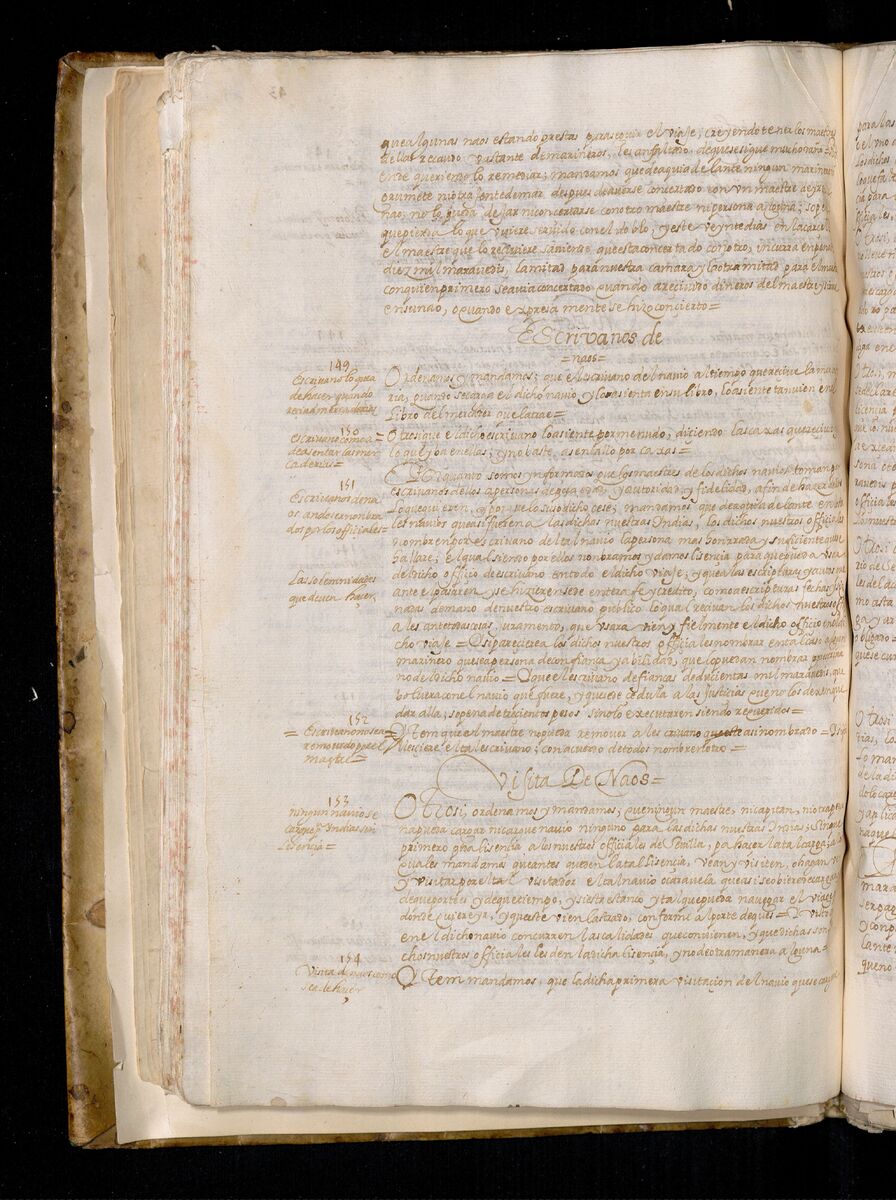 que algunas naos estando prestas para seguir el viaje, creyendo tener los maestres
dellas recaudo vastante de marineros, les an faltado de que se sigue mucho daño
ende queriendolo remediar; mandamos que de aqui adelante ningun marinero
grumete ni otra jente de mar despues de averse concertado con un maestre de yr en su
nao, no lo pueda dejar ni concertarse con otro maestre ni persona alguna; so pena
que pierda lo que uviere servido con el doblo, y este veynte dias en la carcel
el maestre que lo reciviere saviendo, que esta concertado con otro, incurra en pena
diez mil maravedis, la mitad para nuestra camara y la otra mitad para el maestre
con quien primero se avia concertado quando a recivido dineros del maestre
en su nao, o quando expresamente se hizo concierto =
Escrivanos de
= naos =
149
Escrivano lo que a
de hacer quando
reciva mercadurias
Ordenamos y mandamos; que el escrivano del navio al tiempo que recive la
ria, quando se carga el dicho navio y los asienta en su libro, lo asiente tanvien en el
libro del mercader que la trae =
150
escrivano como a
de asentar las mer
caderias =
Otrosi que el dicho escrivano lo asiente por menudo, diciendo las caxas que recive y
lo que va en ellas; y no baste asentallo por caxas =
151
Escrivanos de na
os an de ser nombra
dos por los officiales =
Por quanto somos ynformados que los maestres de los dichos navios toman por
escrivanos dellos a personas de poca edad, y autoridad y fidelidad, a fin de hazer dellos
lo que quieren, y porque lo susodicho cese; mandamos que de aqui adelante en
los navios que asi fueren a las dichas nuestras Indias, los dichos nuestros officiales
nombren por escrivano del tal navio la persona mas honrrada y suficiente que
hallare; el qual siendo por ellos nombrado le damos licencia para que pueda usar
del dicho officio de escrivano en todo el dicho viaje; y que a las escripturas y autos que
Las solemnidades
que deven hacer,
ante el pasaren y se hizieren se de entera fe y credito, como a escripturas fechas y
nadas de mano de nuestro escrivano publico lo qual recivan los dichos nuestros
ales ante todas cosas juramento, que usara vien y fielmente el dicho officio en el di
cho viaje = Si pareciere a los dichos nuestros officiales nombrar en tal caso algun
marinero que sea persona de confiança y abilidad, que lo puedan nombrar por escriva
no del dicho navio = que el escrivano de fianças de ducientas mil maravedis, que
bolvera con el navio que fuere, y que se de cedula a las justicias que no los dexen que
dar alla; so pena de trecientos pesos si no lo executaren siendo requeridos =
152
= Escrivano no sea
removido por el
magstre
Otrem que el maestre no pueda remover al escrivano que este asi nombrado =
falleciere el tal escrivano; con acuerdo de todos nombren otro =
Visita De Naos =
153
ningun navio se
cargue pa Indias sin
licencia =
Otrosi, ordenamos y mandamos; que ningun maestre, ni capitan, ni otra perso
na pueda cargar ni cargue navio ninguno para las dichas nuestras Indias; sin que
primero pida licencia a los nuestros officiales de Sevilla, pa hacer la tal carga; a los
quales mandamos que antes que den la tal licencia, vean y visiten, o hagan ver
y visitar por el tal visitador el tal navio o caravela que asi se obiere de cargar
de que porte es y de que tiempo, y si esta estanco y tal que pueda navegar el viaje
donde quiere yr, y que este vien lastrado, conforme al porte de que es =
en el dicho navio concurren las calidades que convienen, y que dichas son
chos nuestros officiales les den la dicha licencia, y no de otra manera alguna =
154
Visita de naos como
se a de hacer
Otrem mandamos, que la dicha primera visitacion del navio que se